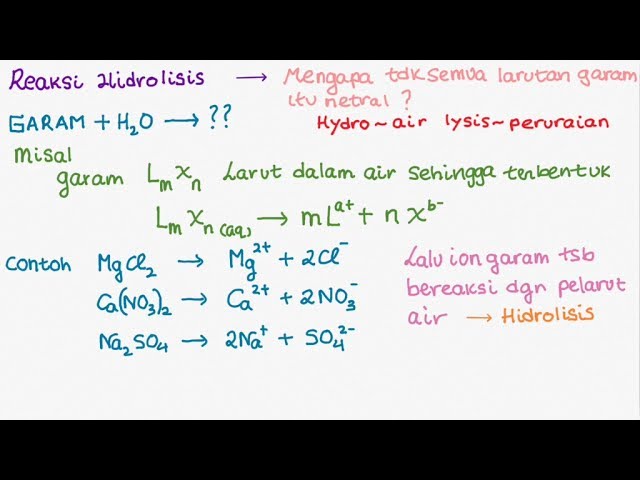 Reaksi Hidrolisis → Mengapa tdk semua larutan garam
itu netral ?
GARAM + H₂O → ??
Hydro ~ air lysis ~ peruraian
Misal
garam LₘXₙ Larut dalam air sehingga terbentuk
LₘXₙ(aq) → mLᵃ⁺ + nXᵇ⁻
Contoh MgCl₂ → Mg²⁺ + 2Cl⁻
Ca(NO₃)₂ → Ca²⁺ + 2NO₃⁻
Na₂SO₄ → 2Na⁺ + SO₄²⁻
Lalu ion garam tsb
bereaksi dgn pelarut
air → Hidrolisis